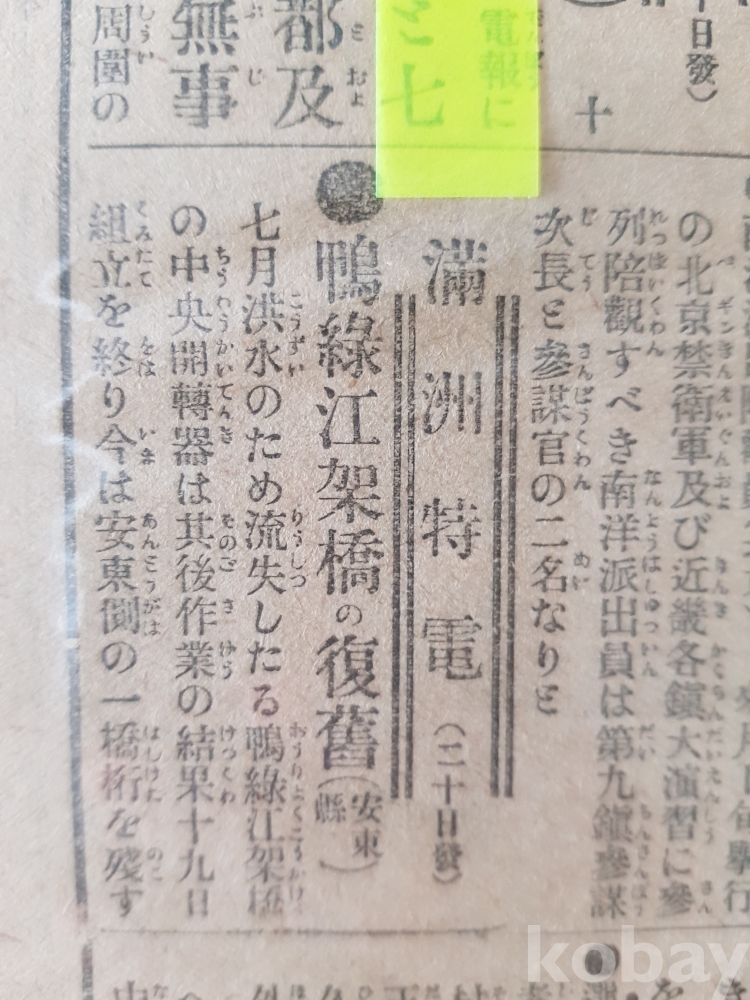 十日發)
十
電報に
と七
都及
無事
周圍の
の北京禁衛軍及び近畿各鎭大演習に參
列陪觀すべき南洋派出員は第九鎭參謀
次長と參謀官の二名なりと
滿洲特電(二十日發)
●鴨綠江架橋の復舊(安東縣)
七月洪水のため流失したる鴨綠江架橋
の中央開轉器は其後作業の結果十九日
組立を終り今は安東側の一橋桁を殘す
kobay